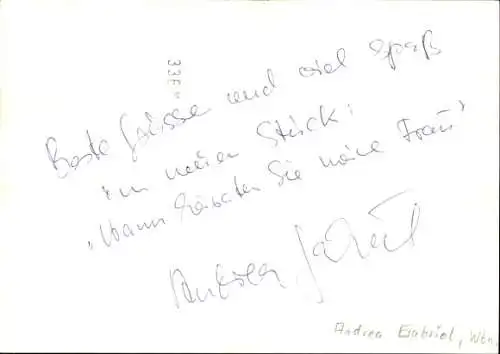 Beste Grüsse und viel Spaß
im neuen Stück:
"Wann heiraten Sie meine Frau"
Andrea Gabriel
Andrea Gabriel,